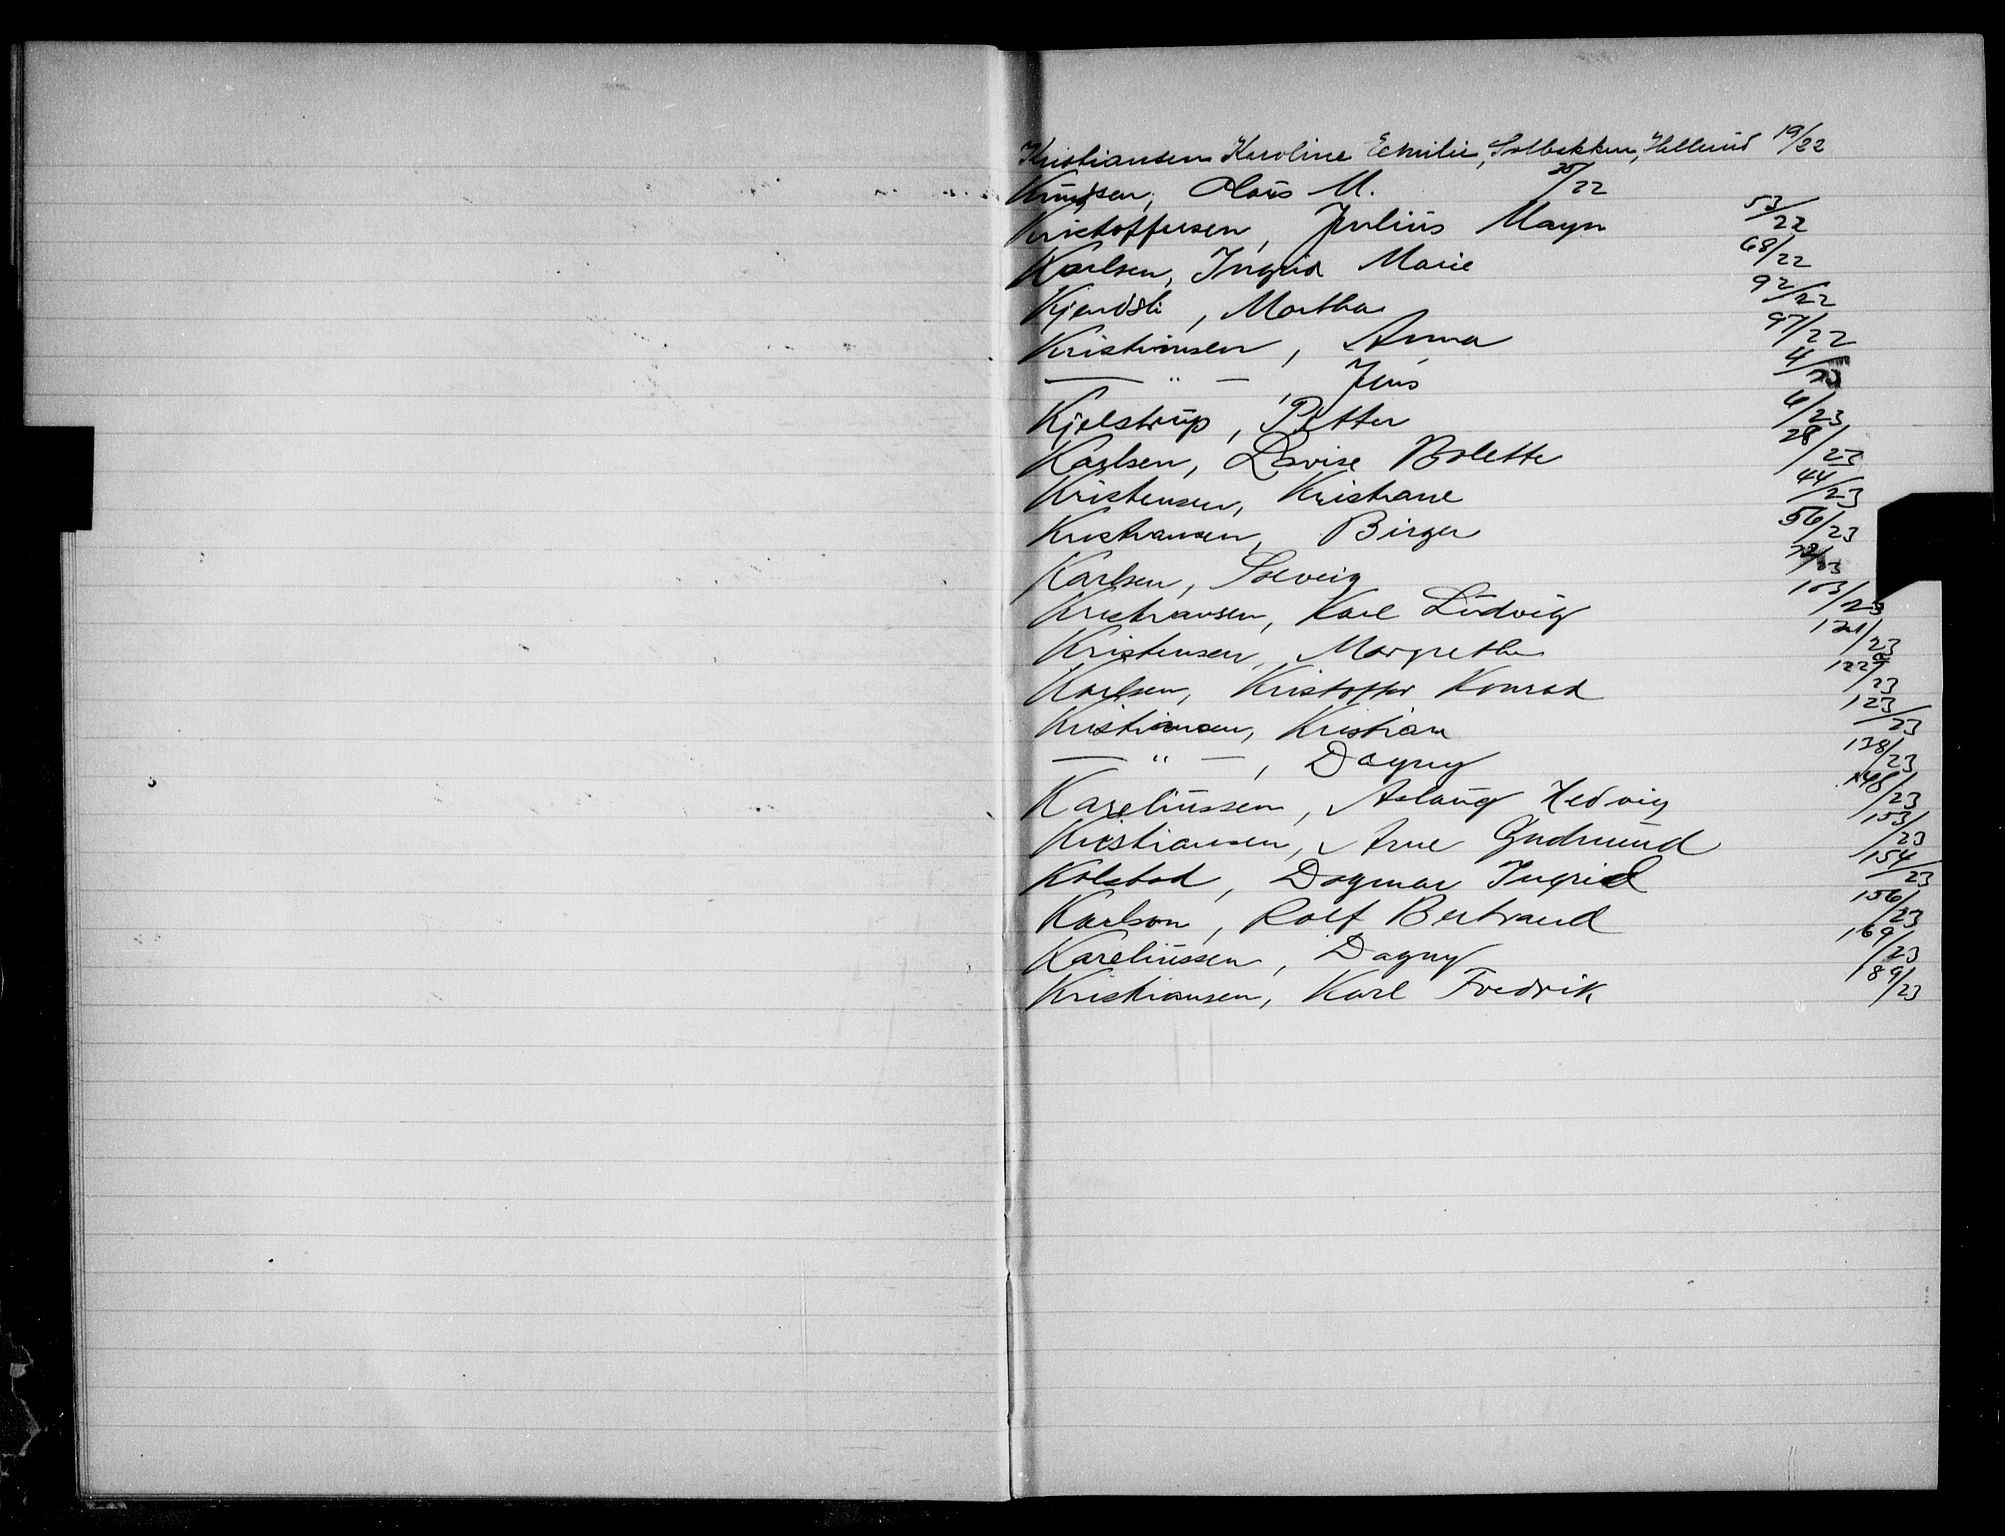 Kristiansen Karoline Emilie, Solbakken, Hellerud 19/22
Knudsen, Claus M. 35/22
Kristoffersen, Julius Mayn 53/22
Karlsen, Ingrid Marie 68/22
Kjendsli, Martha 92/22
Kristiansen, Anna 97/22
— " —, Jens 4/23
Kjelstrup, Petter 6/23
Karlsen, Lovise Bolette 28/23
Kristensen, Kristiane 44/23
Kristiansen, Birger 56/23
Karlsen, Solveig /23
Kristiansen, Karl Ludvig 103/23
Kristensen, Margrethe 121/23
Karlsen, Kristoffer Konrad 122/23
Kristiansen, Kristian 123/23
— " —, Dagny 138/23
Kareliussen, Aslaug Hedvig 148/23
Kristiansen, Arne Gudmund 153/23
Kolstad, Dagmar Ingrid 154/23
Karlson, Rolf Bertrand 156/23
Kareliussen, Dagny 169/23
Kristiansen, Karl Fredrik 189/23